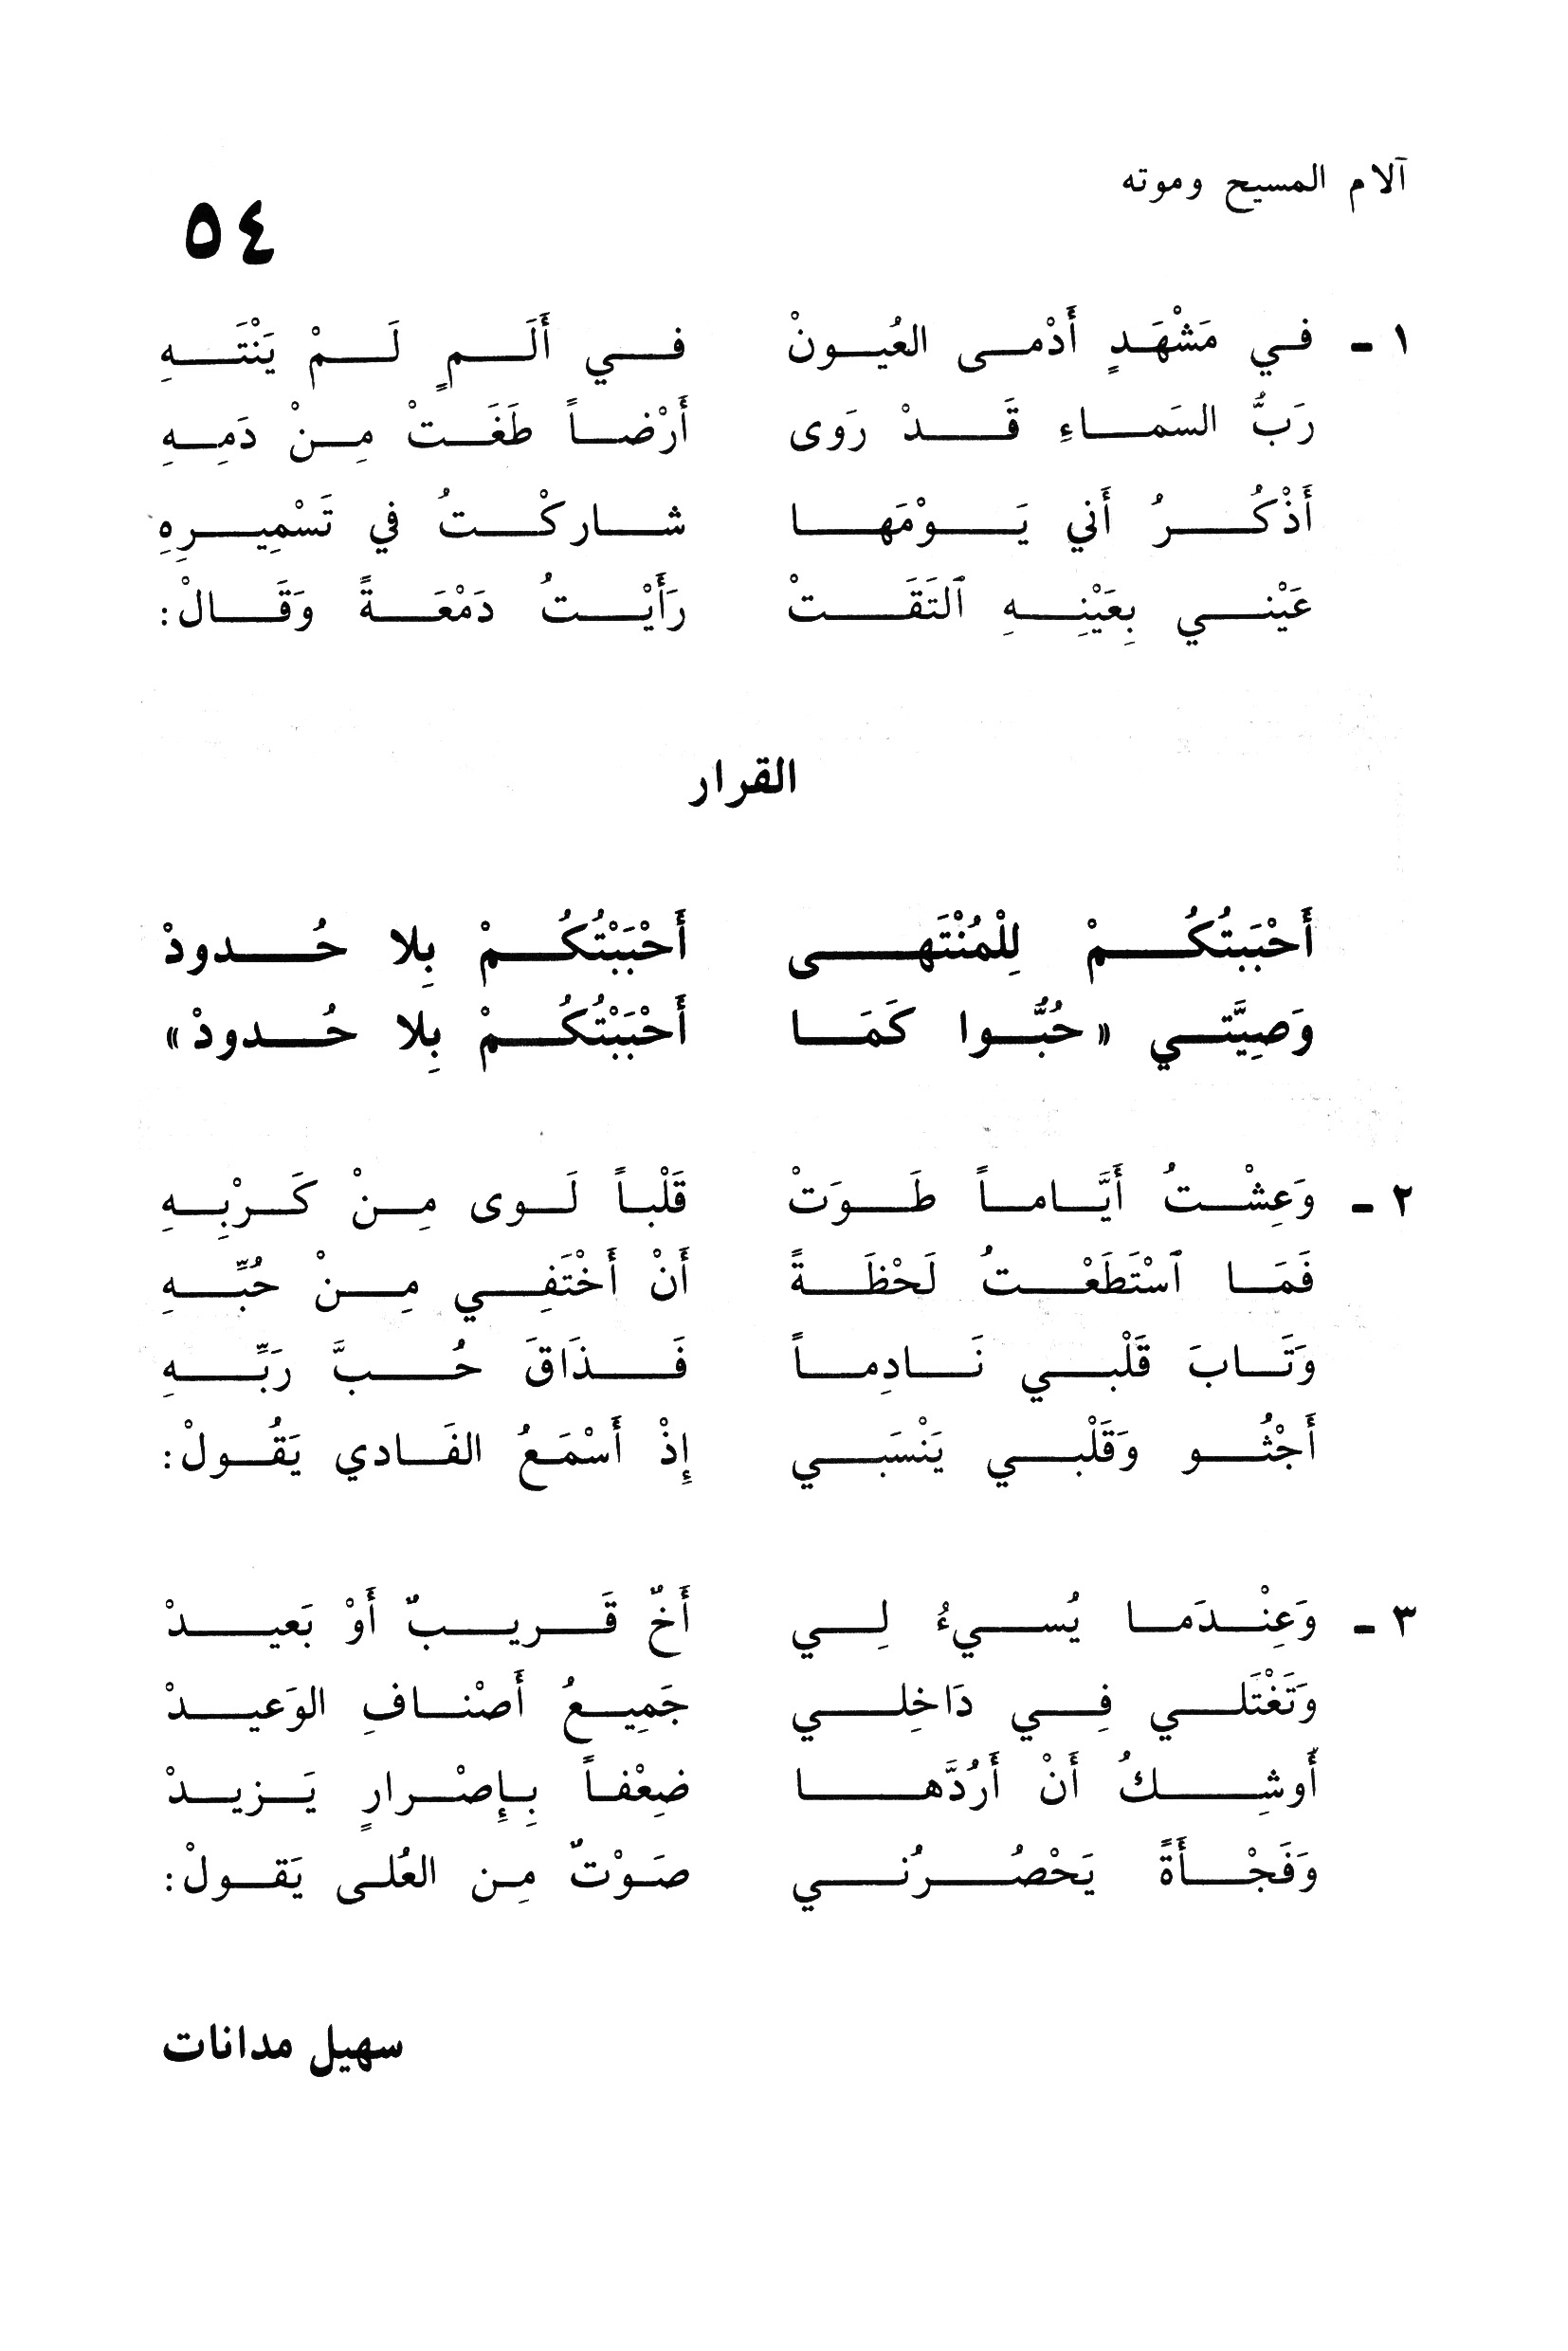 آلام المسيح وموته
٥٤
١ - في مَشْهَدٍ أَدْمى العُيونْ في أَلَمٍ لَمْ يَنْتَهِ
رَبُّ السَماءِ قَدْ رَوى أَرْضاً طَغَتْ مِنْ دَمِهِ
أَذْكُرُ أَني يَوْمَها شاركْتُ في تَسْمِيرِهِ
عَيْني بِعَيْنِهِ ٱلتَقَتْ رَأَيْتُ دَمْعَةً وَقَالْ:
القرار
أَحْبَبتُكُمْ لِلْمُنْتَهى أَحْبَبْتُكُمْ بِلا حُدودْ
وَصِيَّتي «حُبُّوا كَمَا أَحْبَبْتُكُمْ بِلا حُدودْ»
٢ - وَعِشْتُ أَيَّاماً طَوَتْ قَلْباً لَوى مِنْ كَرْبِهِ
فَمَا ٱسْتَطَعْتُ لَحْظَةً أَنْ أَخْتَفِي مِنْ حُبِّهِ
وَتَابَ قَلْبي نَادِماً فَذَاقَ حُبَّ رَبِّهِ
أَجْثُو وَقَلْبي يَنْسَبي إِذْ أَسْمَعُ الفَادي يَقُولْ:
٣ - وَعِنْدَما يُسيءُ لِي أَخٌ قَريبٌ أَوْ بَعيدْ
وَتَغْتَلي فِي دَاخِلي جَمِيعُ أَصْنافِ الوَعيدْ
أُوشِكُ أَنْ أَرُدَّها ضِعْفاً بِإِصْرارٍ يَزيدْ
وَفَجْأَةً يَحْصُرُني صَوْتٌ مِن العُلى يَقولْ:
سهيل مدانات